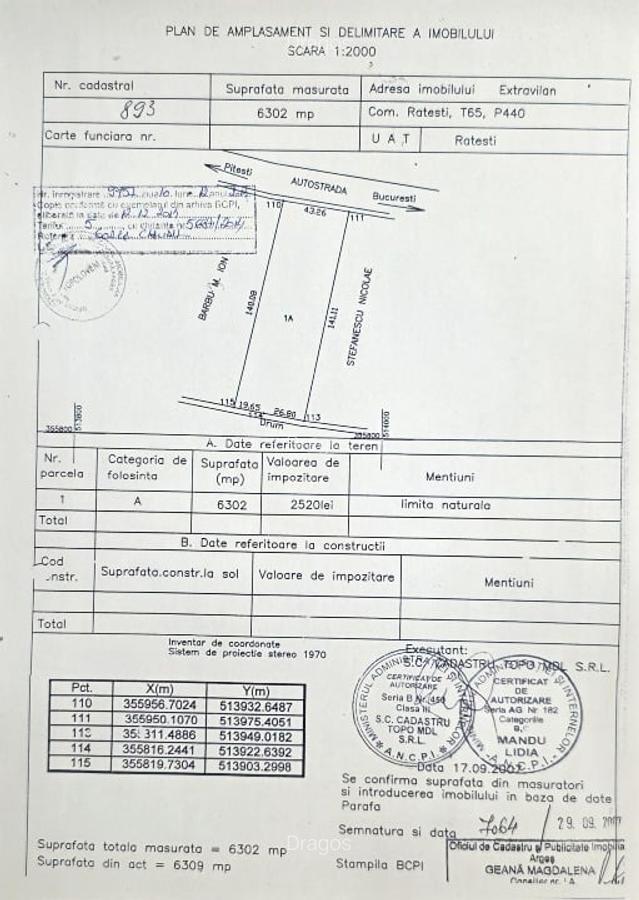 PLAN DE AMPLASAMENT SI DELIMITARE A IMOBILULUI
SCARA 1:2000
Nr. cadastral
Suprafata masurata
Adresa imobilului Extravilan
893
6302 mp
Com. Ratesti, T65, P440
Carte funciara nr.
U A T
Ratesti
Pitesti
AUTOSTRADA
Bucuresti
110
43.26
111
BARBU M. ION
140.09
1A
141.11
STEFANESCU NICOLAE
115
19.65
114
26.80
113
Drum
355800
513800
355800
514000
A. Date referitoare la teren
Nr. parcela
Categoria de folosinta
Suprafata (mp)
Valoarea de impozitare
Mentiuni
1
A
6302
2520lei
limita naturala
Total
B. Date referitoare la constructii
Cod
Suprafata.constr.la sol
Valoare de impozitare
Mentiuni
Total
Inventar de coordonate
Sistem de proiectie stereo 1970
Pct. X(m) Y(m)
110 355956.7024 513932.6487
111 355950.1070 513975.4051
513949.0182
114 355816.2441 513922.6392
115 355819.7304 513903.2998
Executant:
S.C. CADASTRU TOPO MDL S.R.L.
CERTIFICAT DE AUTORIZARE
Seria B Nr. 450
Clasa III
S.C. CADASTRU
TOPO MDL
S.R.L.
A.N.C.P.I.
CERTIFICAT
DE
AUTORIZARE
Seria AG Nr. 182
Categoriile
MANDU
LIDIA
A.N.C.P.I.
Data 17.09
Se confirma suprafata din masuratori
si introducerea imobilului in baza de date
Parafa
Semnatura si data
7064
29.09
Suprafata totala masurata = 6302 mp
Suprafata din act = 6309 mp
Dragos
Stampila BCPI
Oficiul de Cadastru si Publicitate Imobilia
Arges
GEANĂ MAGDALENA